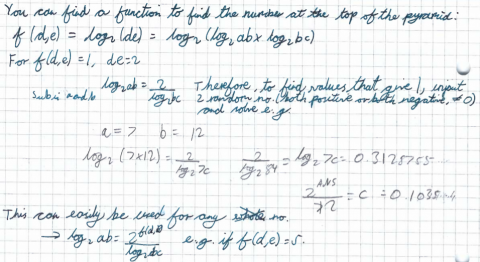 You can find a function to find the number at the top of the pyramid:
f(d,e) = log₂(de) = log₂(log₂ab x log₂bc)
For f(d,e) = 1, de=2
log₂ab = 2/log₂bc Therefore, to find values that give 1, input
Sub in a and b 2 random no. (both positive or both negative, ≠0)
and solve e.g.
a = 7 b = 12
log₂(7x12) = 2/log₂7c 2/log₂84 = log₂7c = 0.3128755
2^ANS/12 = c = 0.1035
This can easily be used for any no.
→ log₂ab = 2^f(d,e)/log₂bc e.g. if f(d,e)=5.